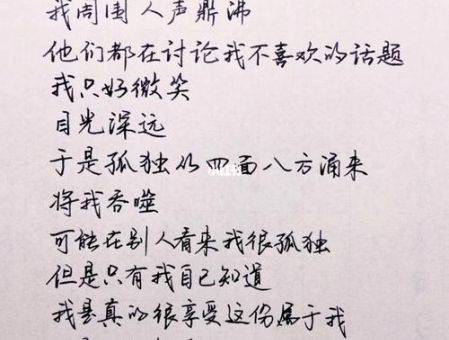 我周围人声鼎沸
他们都在讨论我不喜欢的话题
我只好微笑
目光深远
于是孤独从四面八方涌来
将我吞噬
可能在别人看来我很孤独
但是只有我自己知道
我是真的很享受这份属于我